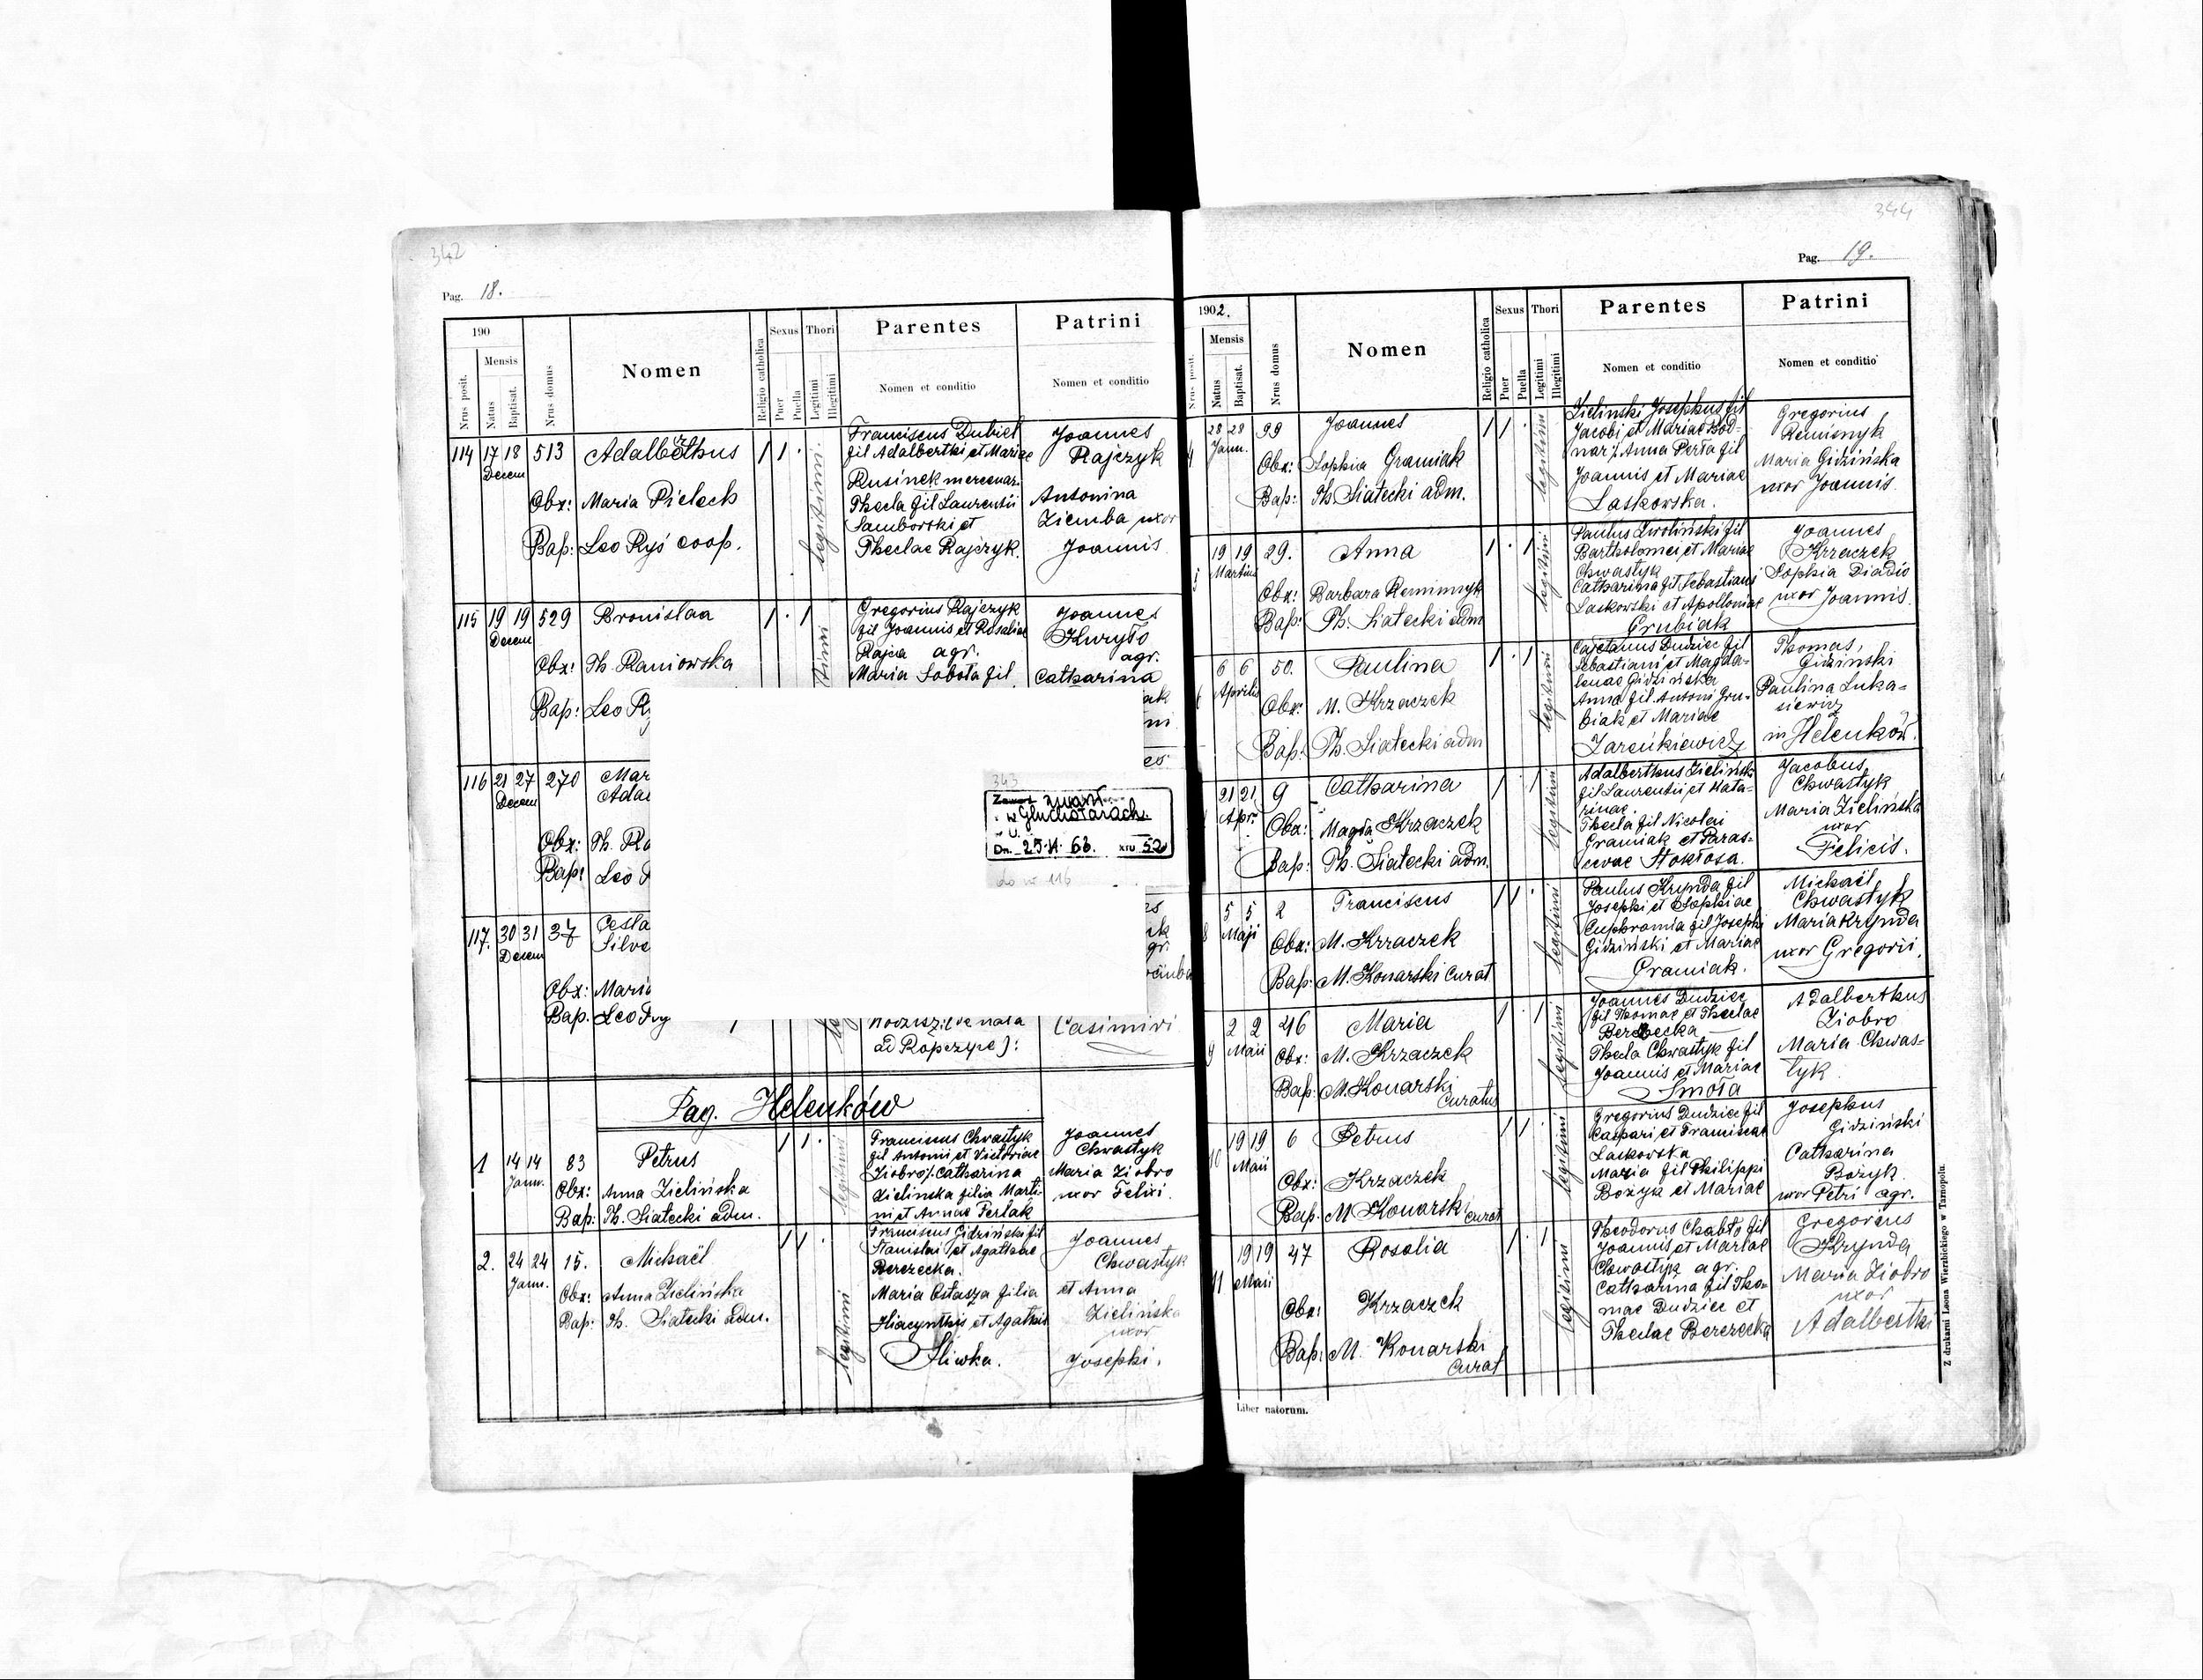 342
Pag. 18.
190
Nrus posit.
Mensis
Natus
Baptisat.
Nrus domus
Nomen
Religio catholica
Sexus
Puer
Puella
Thori
Legitimi
Illegitimi
Parentes
Nomen et conditio
Patrini
Nomen et conditio
114 17 18 513 Adalberthus 1 1 .
Decem
Obx: Maria Pieleck
Bap: Leo Ryś coop.
legitimi
Franciscus Dubiel
fil Adalberthi et Mariae
Rusinek mercenar.
Thecla fil Laurentii
Samborski et
Theclae Rajczyk.
Joannes
Rajczyk
Antonina
Ziemba uxor
Joannis
115 19 19 529 Bronislaa 1 . 1
Decem
Obx: Th. Raniowska
Bap: Leo Ry
Gregorius Rajczyk
fil Joannis et Rosaliae
Rajca agr.
Maria Sobota fil
Joannes
Kuryło
agr.
Catharina
116 21 27 270 Mar
Decem Adal
Obx: Th. Ra
Bap: Leo
343
zwarł
w Głuchołazach
U.
Dn. 25.II.63. XIV 52
do nr 116
117. 30 31 37 Cesla
Decem Silve
Obx: Maria
Bap. Leo Ry
ad Ropczyce):
Casimiri
Pag. Helenków
1 14 14 83 Petrus 1 1 .
Jann.
Obx: Anna Zielińska
Bap: Th. Siatecki adm.
legitimi
Franciscus Chwastyk
fil Antonii et Victoriae
Ziobro/. Catharina
Zielinska filia Marti-
ni et Annae Perlak
Joannes
Chwastyk
Maria Ziobro
uxor Felixi.
2. 24 24 15. Michaël 1 1 .
Jann.
Obx: Anna Zielińska
Bap: Th. Siatecki adm.
legitimi
Franciscus Gidziński fil
Stanislai et Agathae
Berezecka.
Maria Ostasza filia
Hiacynthi et Agathis
Sliwka.
Joannes
Chwastyk
et Anna
Zielińska
uxor
Josephi.
344
Pag. 19.
1902.
Nrus posit.
Mensis
Natus
Baptisat.
Nrus domus
Nomen
Religio catholica
Sexus
Puer
Puella
Thori
Legitimi
Illegitimi
Parentes
Nomen et conditio
Patrini
Nomen et conditio
28 28 99 Joannes 1 1 .
Jann.
Obx: Sophia Gramiak
Bap: Th. Siatecki adm.
legitimi
Zielinski Josephus fil
Jacobi et Mariae Bod-
nar/. Anna Perła fil
Joannis et Mariae
Laskowska.
Gregorius
Remisnyk
Maria Gidzińska
uxor Joannis.
19 19 29. Anna 1 . 1
Martius
Obx: Barbara Remimnyk
Bap: Th. Siatecki adm
legitimi
Paulus Zwoliński fil
Bartholomei et Mariae
Chwastyk
Catharina fil Sebastiani
Laskowski et Apolloniae
Grubiak
Joannes
Krzaczek
Sophia Diadio
uxor Joannis.
6 6 50. Paulina 1 . 1
Aprilis
Obx: M. Krzaczek
Bap: Th. Siatecki adm
legitimi
Cajetanus Dudziec fil
Sebastiani et Magda-
lenae Gidzińska
Anna fil Antoni Gru-
biak et Mariae
Zareńkiewicz
Thomas,
Gidzinski
Paulina Luka-
siewicz
in Helenków.
21 21 9 Catharina 1 . 1
Apr.
Obx: Magda Krzaczek
Bap: Th. Siatecki adm.
legitimi
Adalberthus Zielińsk
fil Laurentii et Kata-
rinae.
Thecla fil Nicolai
Gramiak et Paras-
cevae Stokłosa.
Jacobus
Chwastyk
Maria Zielińska
uxor
Felicis.
5 5 2 Franciscus 1 1 .
Maji
Obx: M. Krzaczek
Bap: M. Konarski Curat
legitimi
Paulus Krynda fil
Josephi et Sophiae
Euphromia fil Josephi
Gidziński et Mariae
Gramiak.
Michaël
Chwastyk
Maria Krynda
uxor Gregorii.
9 2 2 46 Maria 1 . 1
Maii
Obx: M. Krzaczek
Bap: M. Konarski
Curatus
legitimi
Joannes Dudziec
fil Thomae et Theclae
Berezecka
Thecla Chwastyk fil
Joannis et Mariae
Smoła
Adalberthus
Ziobro
Maria Chwas-
tyk.
10 19 19 6 Petrus 1 1 .
Maii
Obx: Krzaczek
Bap: M Konarski curat
legitimi
Gregorius Dudziec fil
Caspari et Franciscae
Laskowska
Maria fil Philippi
Bożyk et Mariae
Josephus
Gidziński
Catharina
Bożyk
uxor Petri agr.
11 19 19 47 Rosalia 1 . 1
Maii
Obx: Krzaczek
Bap: M. Konarski
Curat
legitimi
Theodorus Chabło fil
Joannis et Mariae
Chwastyk agr.
Catharina fil Tho-
mae Dudziec et
Theclae Berezecka
Gregorius
Krynda
Maria Ziobro
uxor
Adalberthi
Liber natorum.
Z drukarni Leona Wierzbickiego w Tarnopolu.